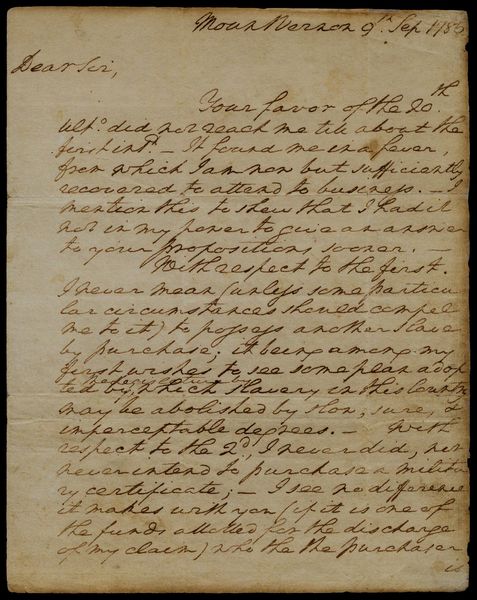 Mount Vernon 9th Sep 1786
Dear Sir,
Your favor of the 20th
ulto. did not reach me till about the
first inst. – It found me in a fever,
from which I am now but sufficiently
recovered to attend to business. – I
mention this to shew that I had it
not in my power to give an answer
to your propositions sooner. –
With respect to the first.
I never mean (unless some particu
lar circumstances should compel
me to it) to possess another slave
by purchase; it being among my
first wishes to see some plan adop
ted by which slavery in this Country
may be abolished by slow, sure, &
imperceptable degrees. – With
respect to the 2d., I never did, nor
never intend to purchase a milita
ry certificate; – I see no difference
it makes with you (if it is one of
the funds allotted for the discharge
of my claim) who the the purchaser
is